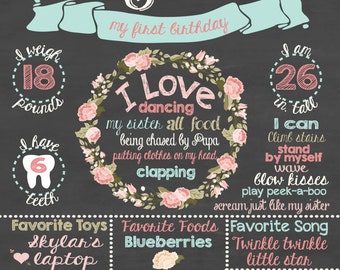 my first birthday
I weigh
18
pounds
I am
26
in tall
I Love
dancing
my sister all food
being chased by Papa
putting clothes on my head
clapping
I have
6
teeth
I can
Climb stairs
stand
by myself
wave
blow kisses
play peek-a-boo
scream just like my sister
Favorite Toys
Skylar's
laptop
Favorite Foods
Blueberries
Favorite Song
Twinkle twinkle
little star